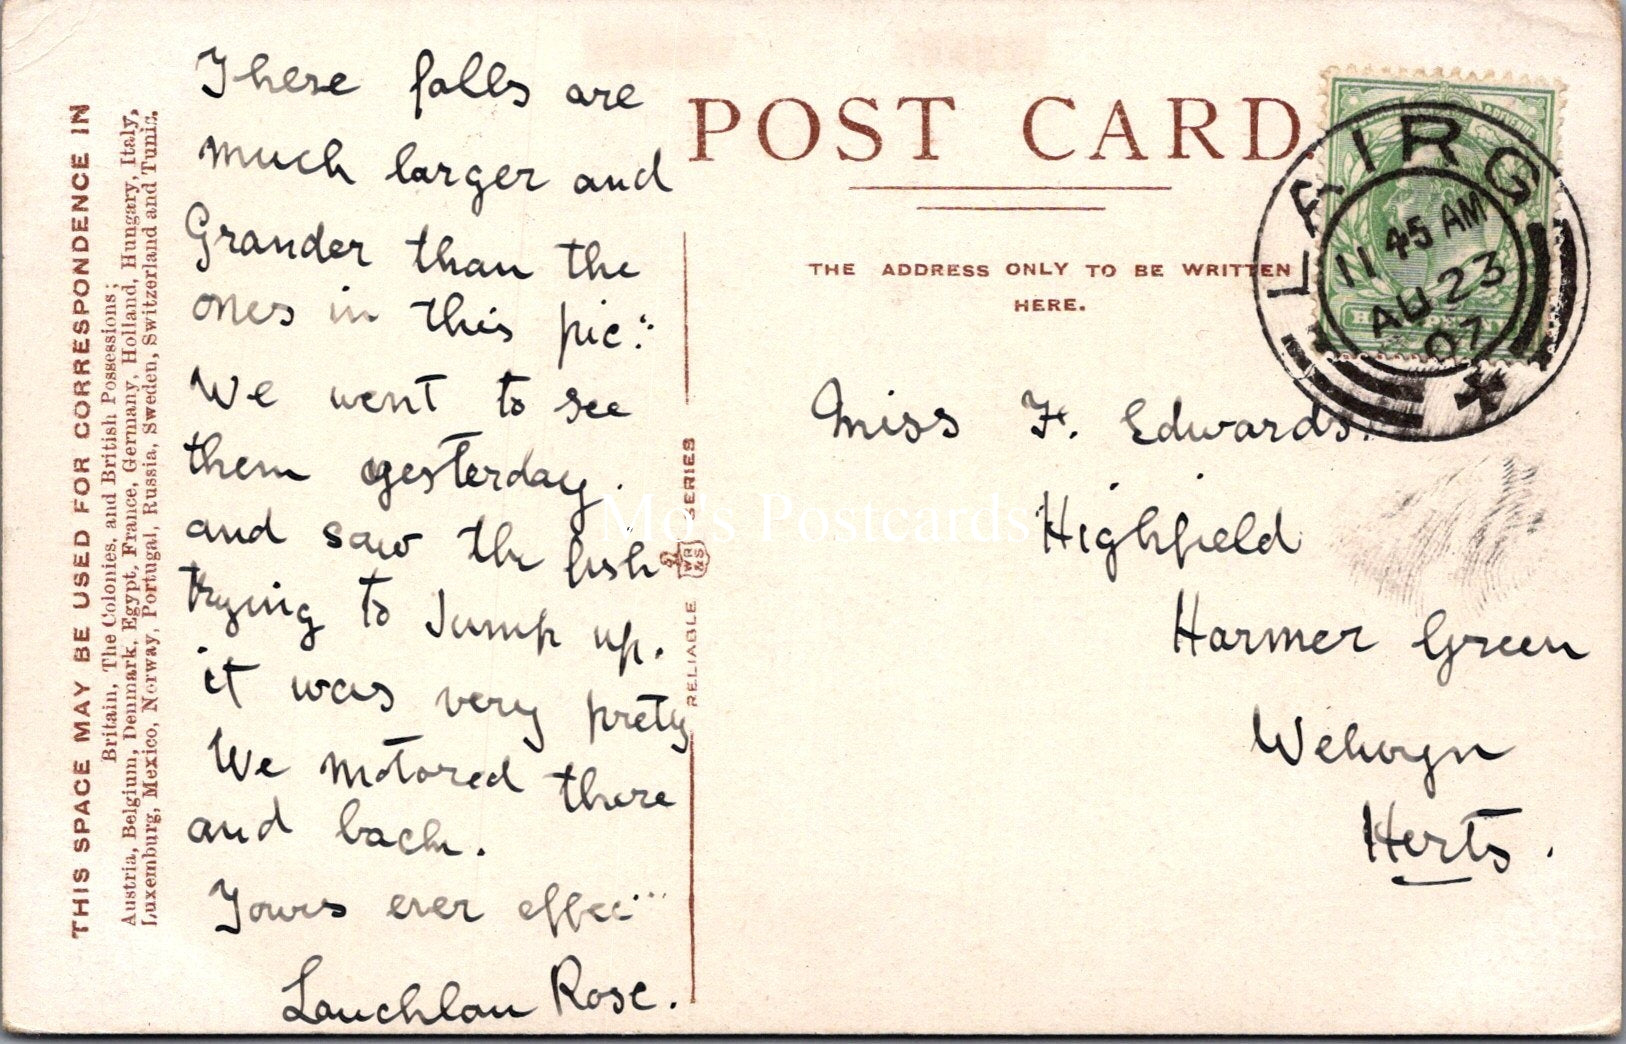 THIS SPACE MAY BE USED FOR CORRESPONDENCE IN
Britain, The Colonies, and British Possessions;
Austria, Belgium, Denmark, Egypt, France, Germany, Holland, Hungary, Italy,
Luxemburg, Mexico, Norway, Portugal, Russia, Sweden, Switzerland and Tunis.
These falls are
much larger and
Grander than the
ones in this pic:
We went to see
them yesterday.
and saw the fish
trying to Jump up.
it was very prety
We motored there
and back.
Yours ever affec...
Lauchlan Rose.
RELIABLE WR&S SERIES
POST CARD.
THE ADDRESS ONLY TO BE WRITTEN
HERE.
LAIRG
11 45 AM
AU 23
07
HALFPENNY
Miss F. Edwards.
Highfield
Harmer Green
Welwyn
Herts.
Mo's Postcards